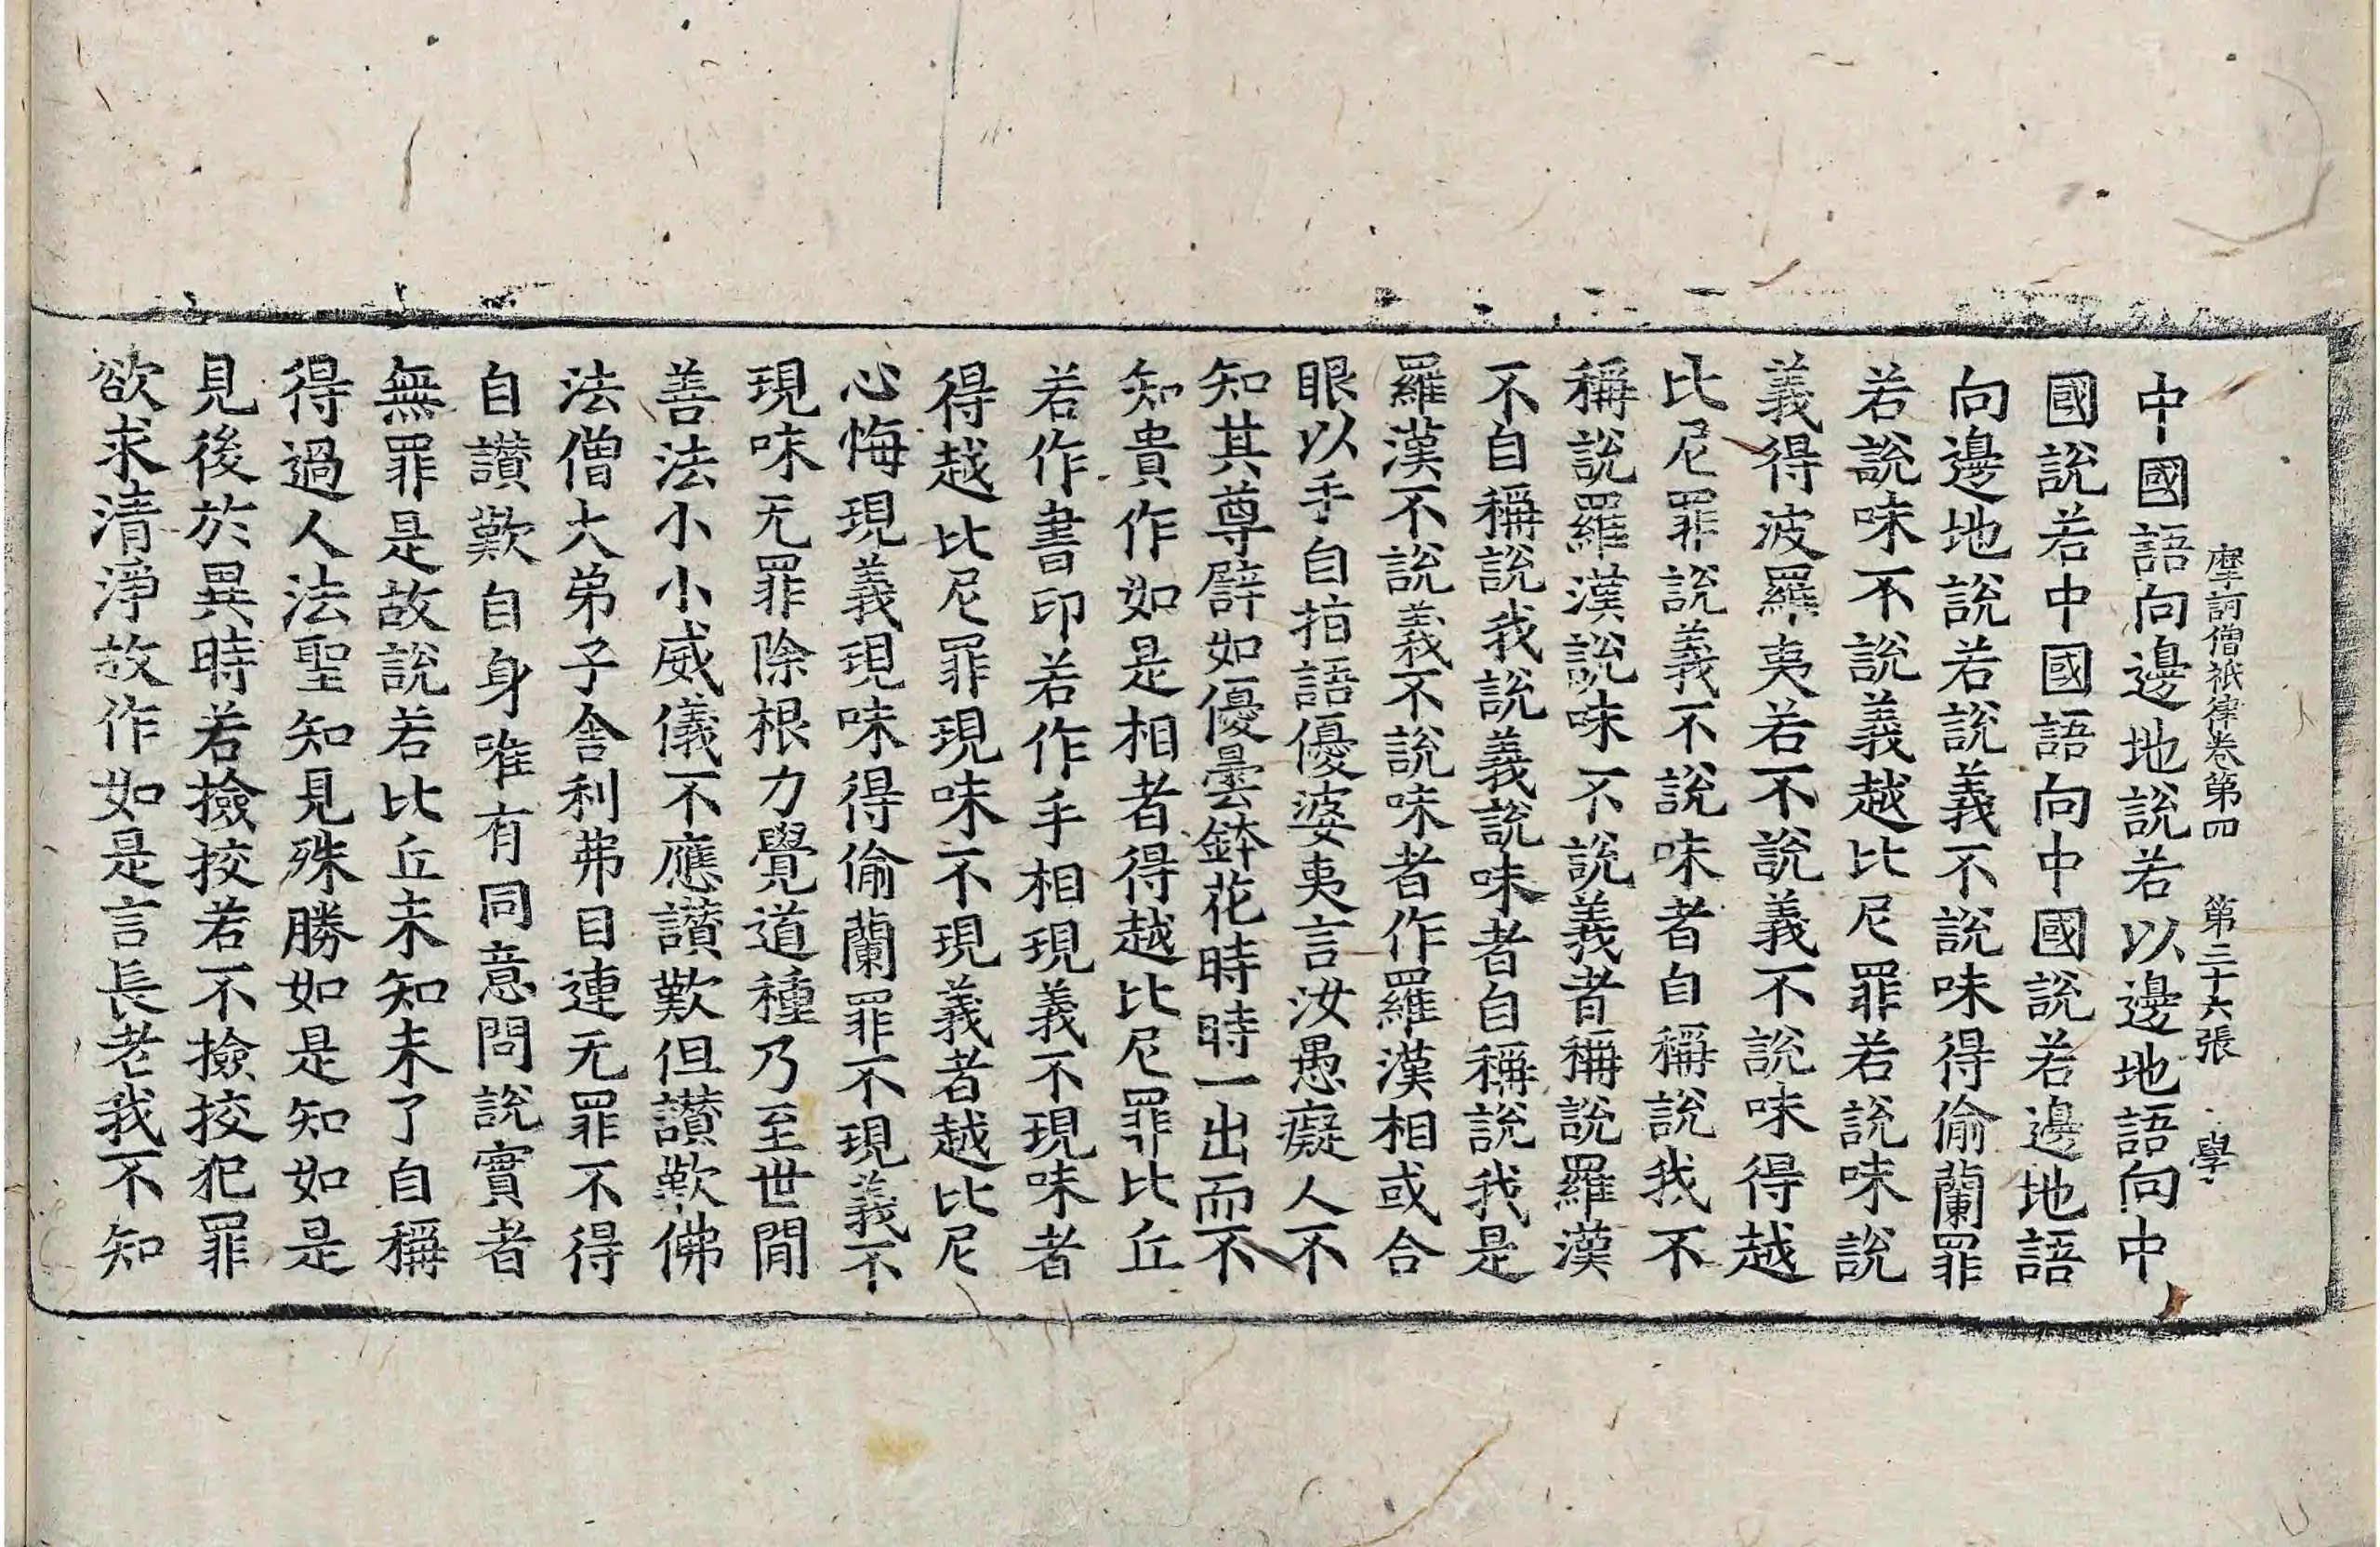 摩訶僧祇律卷第四　第三十六張　學
中國語向邊地說若以邊地語向中
國說若中國語向中國說若邊地語
向邊地說若說義不說味得偷蘭罪
若說味不說義越比尼罪若說味說
義得波羅夷若不說義不說味得越
比尼罪說義不說味者自稱說我不
稱說羅漢說味不說義者稱說羅漢
不自稱說我說義說味者自稱說我是
羅漢不說義不說味者作羅漢相或合
眼以手自指語優婆夷言汝愚癡人不
知其尊譬如優曇鉢花時時一出而不
知貴作如是相者得越比尼罪比丘
若作書印若作手相現義不現味者
得越比尼罪現味不現義者越比尼
心悔現義現味得偷蘭罪不現義不
現味无罪除根力覺道種乃至世間
善法小小威儀不應讃歎但讃歎佛
法僧大弟子舍利弗目連无罪不得
自讃歎自身唯有同意問說實者
無罪是故說若比丘未知未了自稱
得過人法聖知見殊勝如是知如是
見後於異時若撿挍若不撿挍犯罪
欲求清淨故作如是言長老我不知